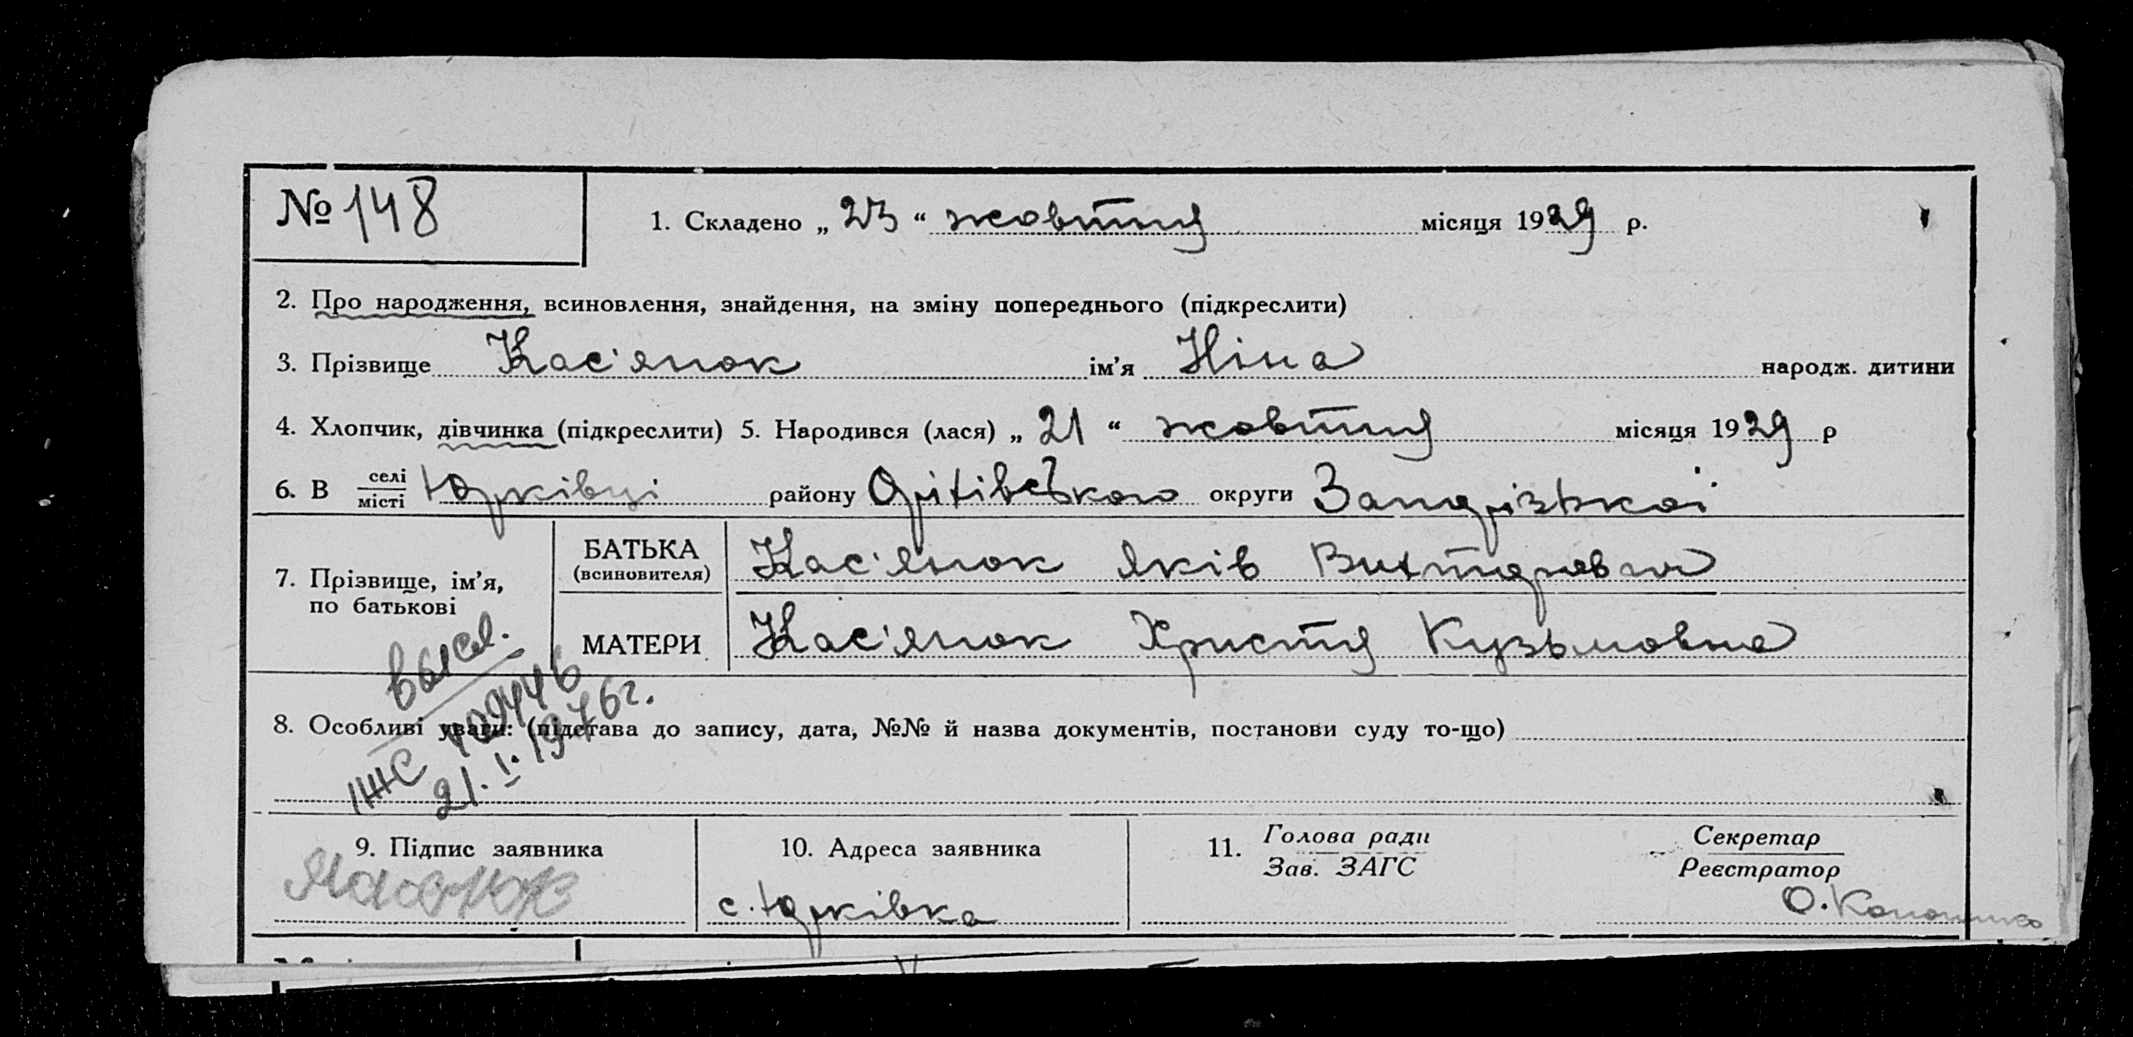 № 148
1. Складено „ 23 “ жовтня місяця 1929 р.
2. Про народження, всиновлення, знайдення, на зміну попереднього (підкреслити)
3. Прізвище Кас'янок ім'я Ніна народж. дитини
4. Хлопчик, дівчинка (підкреслити) 5. Народився (лася) „ 21 “ жовтня місяця 1929 р
6. В селі місті Юрківці району Оріхівського округи Запорізької
7. Прізвище, ім'я, по батькові
БАТЬКА (всиновителя) Кас'янок Яків Вихторович
МАТЕРИ Кас'янок Христя Кузьмовна
высл.
8. Особливі уваги: (підстава до запису, дата, №№ й назва документів, постанови суду то-що)
21.I.1976г.
9. Підпис заявника
10. Адреса заявника
с. Юрківка
11. Голова ради
Зав. ЗАГС
Секретар
Реєстратор